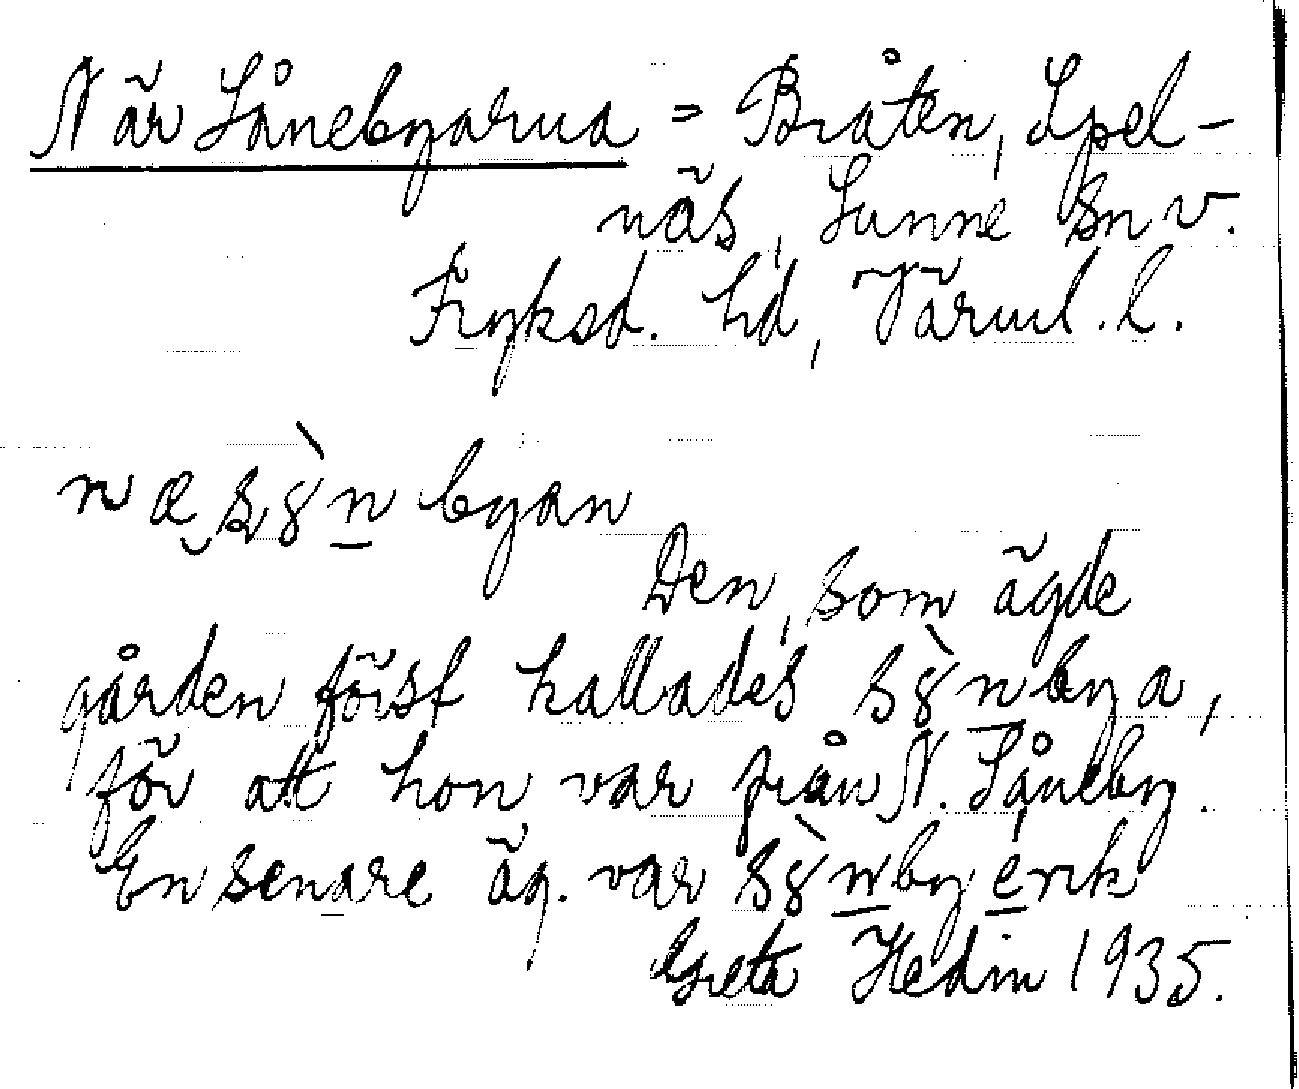 När Sånebyarna = Bråten, Spel-
näs, Sunne sn v.
Fryksd. hd, Värml. l.
næ sȣ̀n byan
Den, som ägde
gården först kallades sȣ̀nbya,
för att hon var från N. Såneby.
En senare äg. var sȣ̀nby erik
Greta Hedin 1935.